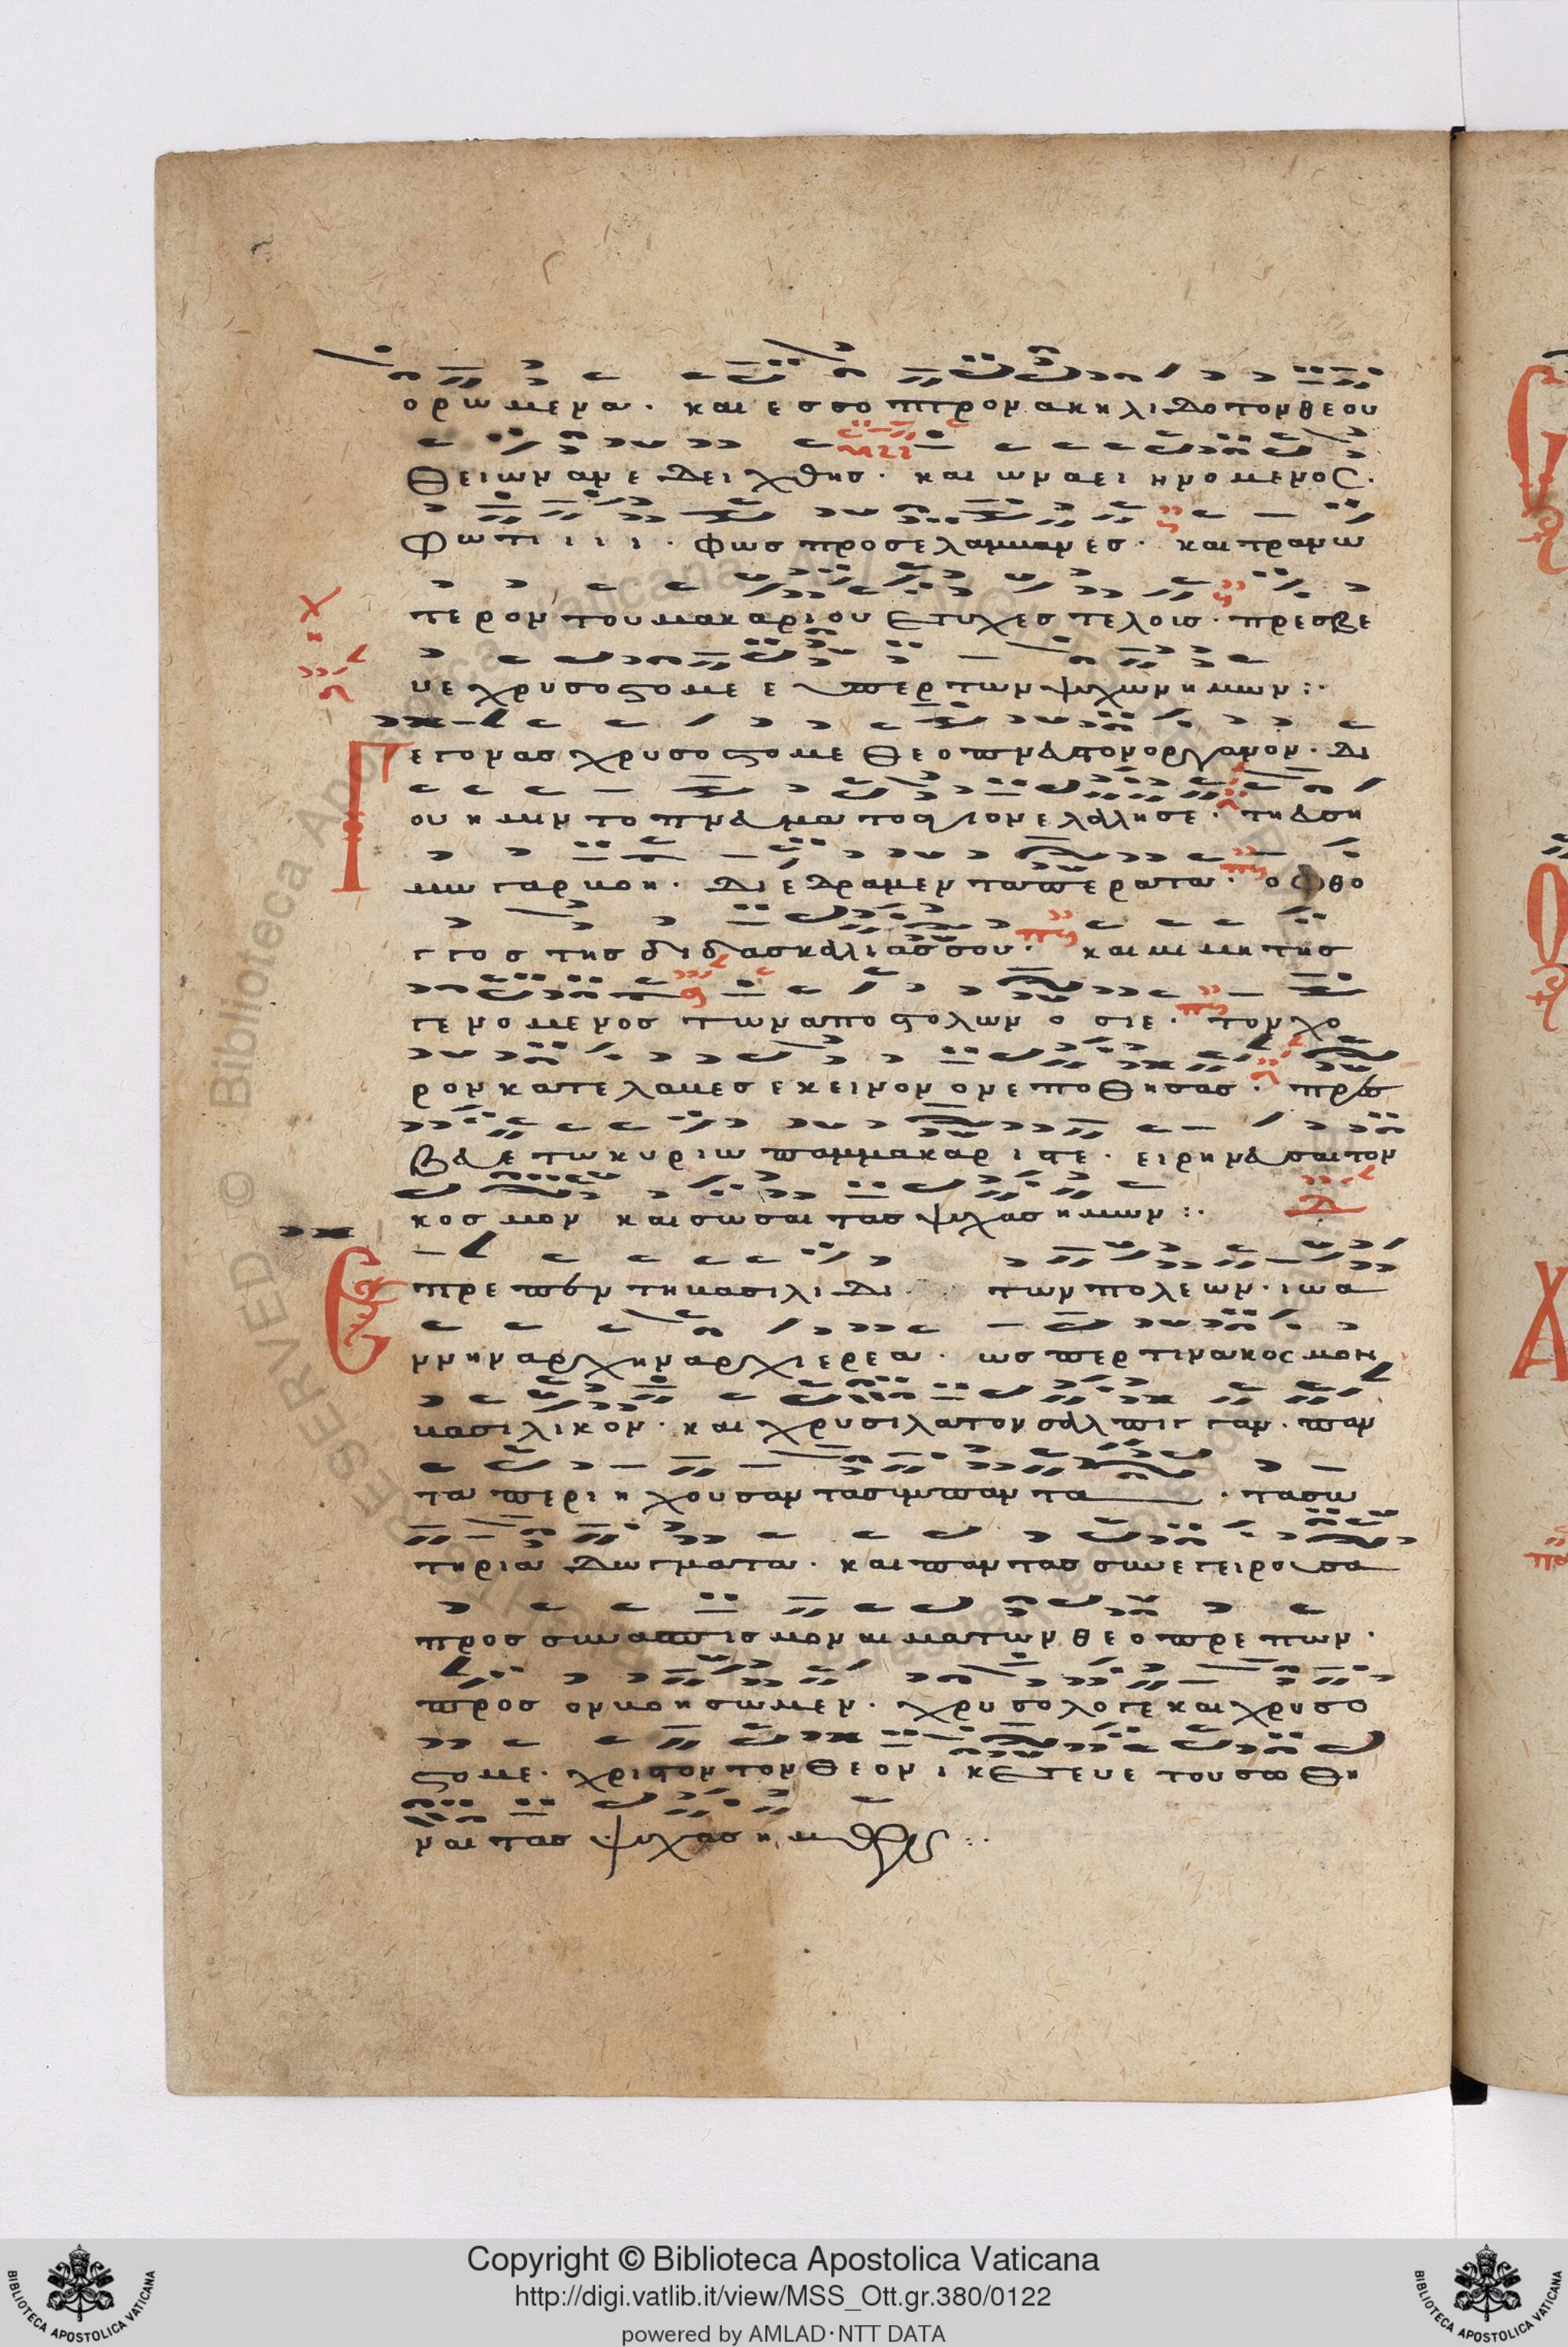 ορωμενα · και εσοπτρον ακηλιδοτον θεου
θειων ανεδειχθης · και ων αει ηνομενος ·
φωτι ι ι ι · φως προσελαμμανες · και τρανω
τερον του μακαριου ετυχες τελοις · πρεσβε
υε χρυσοστομε ε υπερ των ψυχων ημων :·
Γεγονας χρυσοστομε θεοπνευστον οργανον · δι
ου ημιν το πνευμα το αγιον ελαλησε · τη
μω γαρ
διεδραμεν τα περατα · ο φθο
γγος της διδασκαλιας σου · και μιμητης
γενομενος των αποστολων οσιε · τον χο
ρον κατελαβες εκεινον ον εποθησας · πρεσ
βευε τω κυριω παμμακαριστε · ειρηνευσαι τον
κοσμον και σωσαι τας ψυχας ημων :·
Επρεπεν τη βασιλιδι των πολεων · ιωα
ννην αρχην αρχιερεα · ωσπερ τινα κοσμον
βασιλικον · και χρυσιλατον σαλπιγγαν · παν
τα περιηχουσαν τα συμπαντα · τα σω
τηρια δωγματα · και παντας συνεγειρουσα
προς συνασπισμον αισματων θεοπρεπων ·
προς ον βοησωμεν · χρυσολογε και χρυσο
στομε · χριστον τον θεον ικετευε του σωθη
ναι τας ψυχας ημων :·
Copyright © Biblioteca Apostolica Vaticana
http://digi.vatlib.it/view/MSS_Ott.gr.380/0122
powered by AMLAD·NTT DATA
BIBLIOTECA APOSTOLICA VATICANA
BIBLIOTECA APOSTOLICA VATICANA